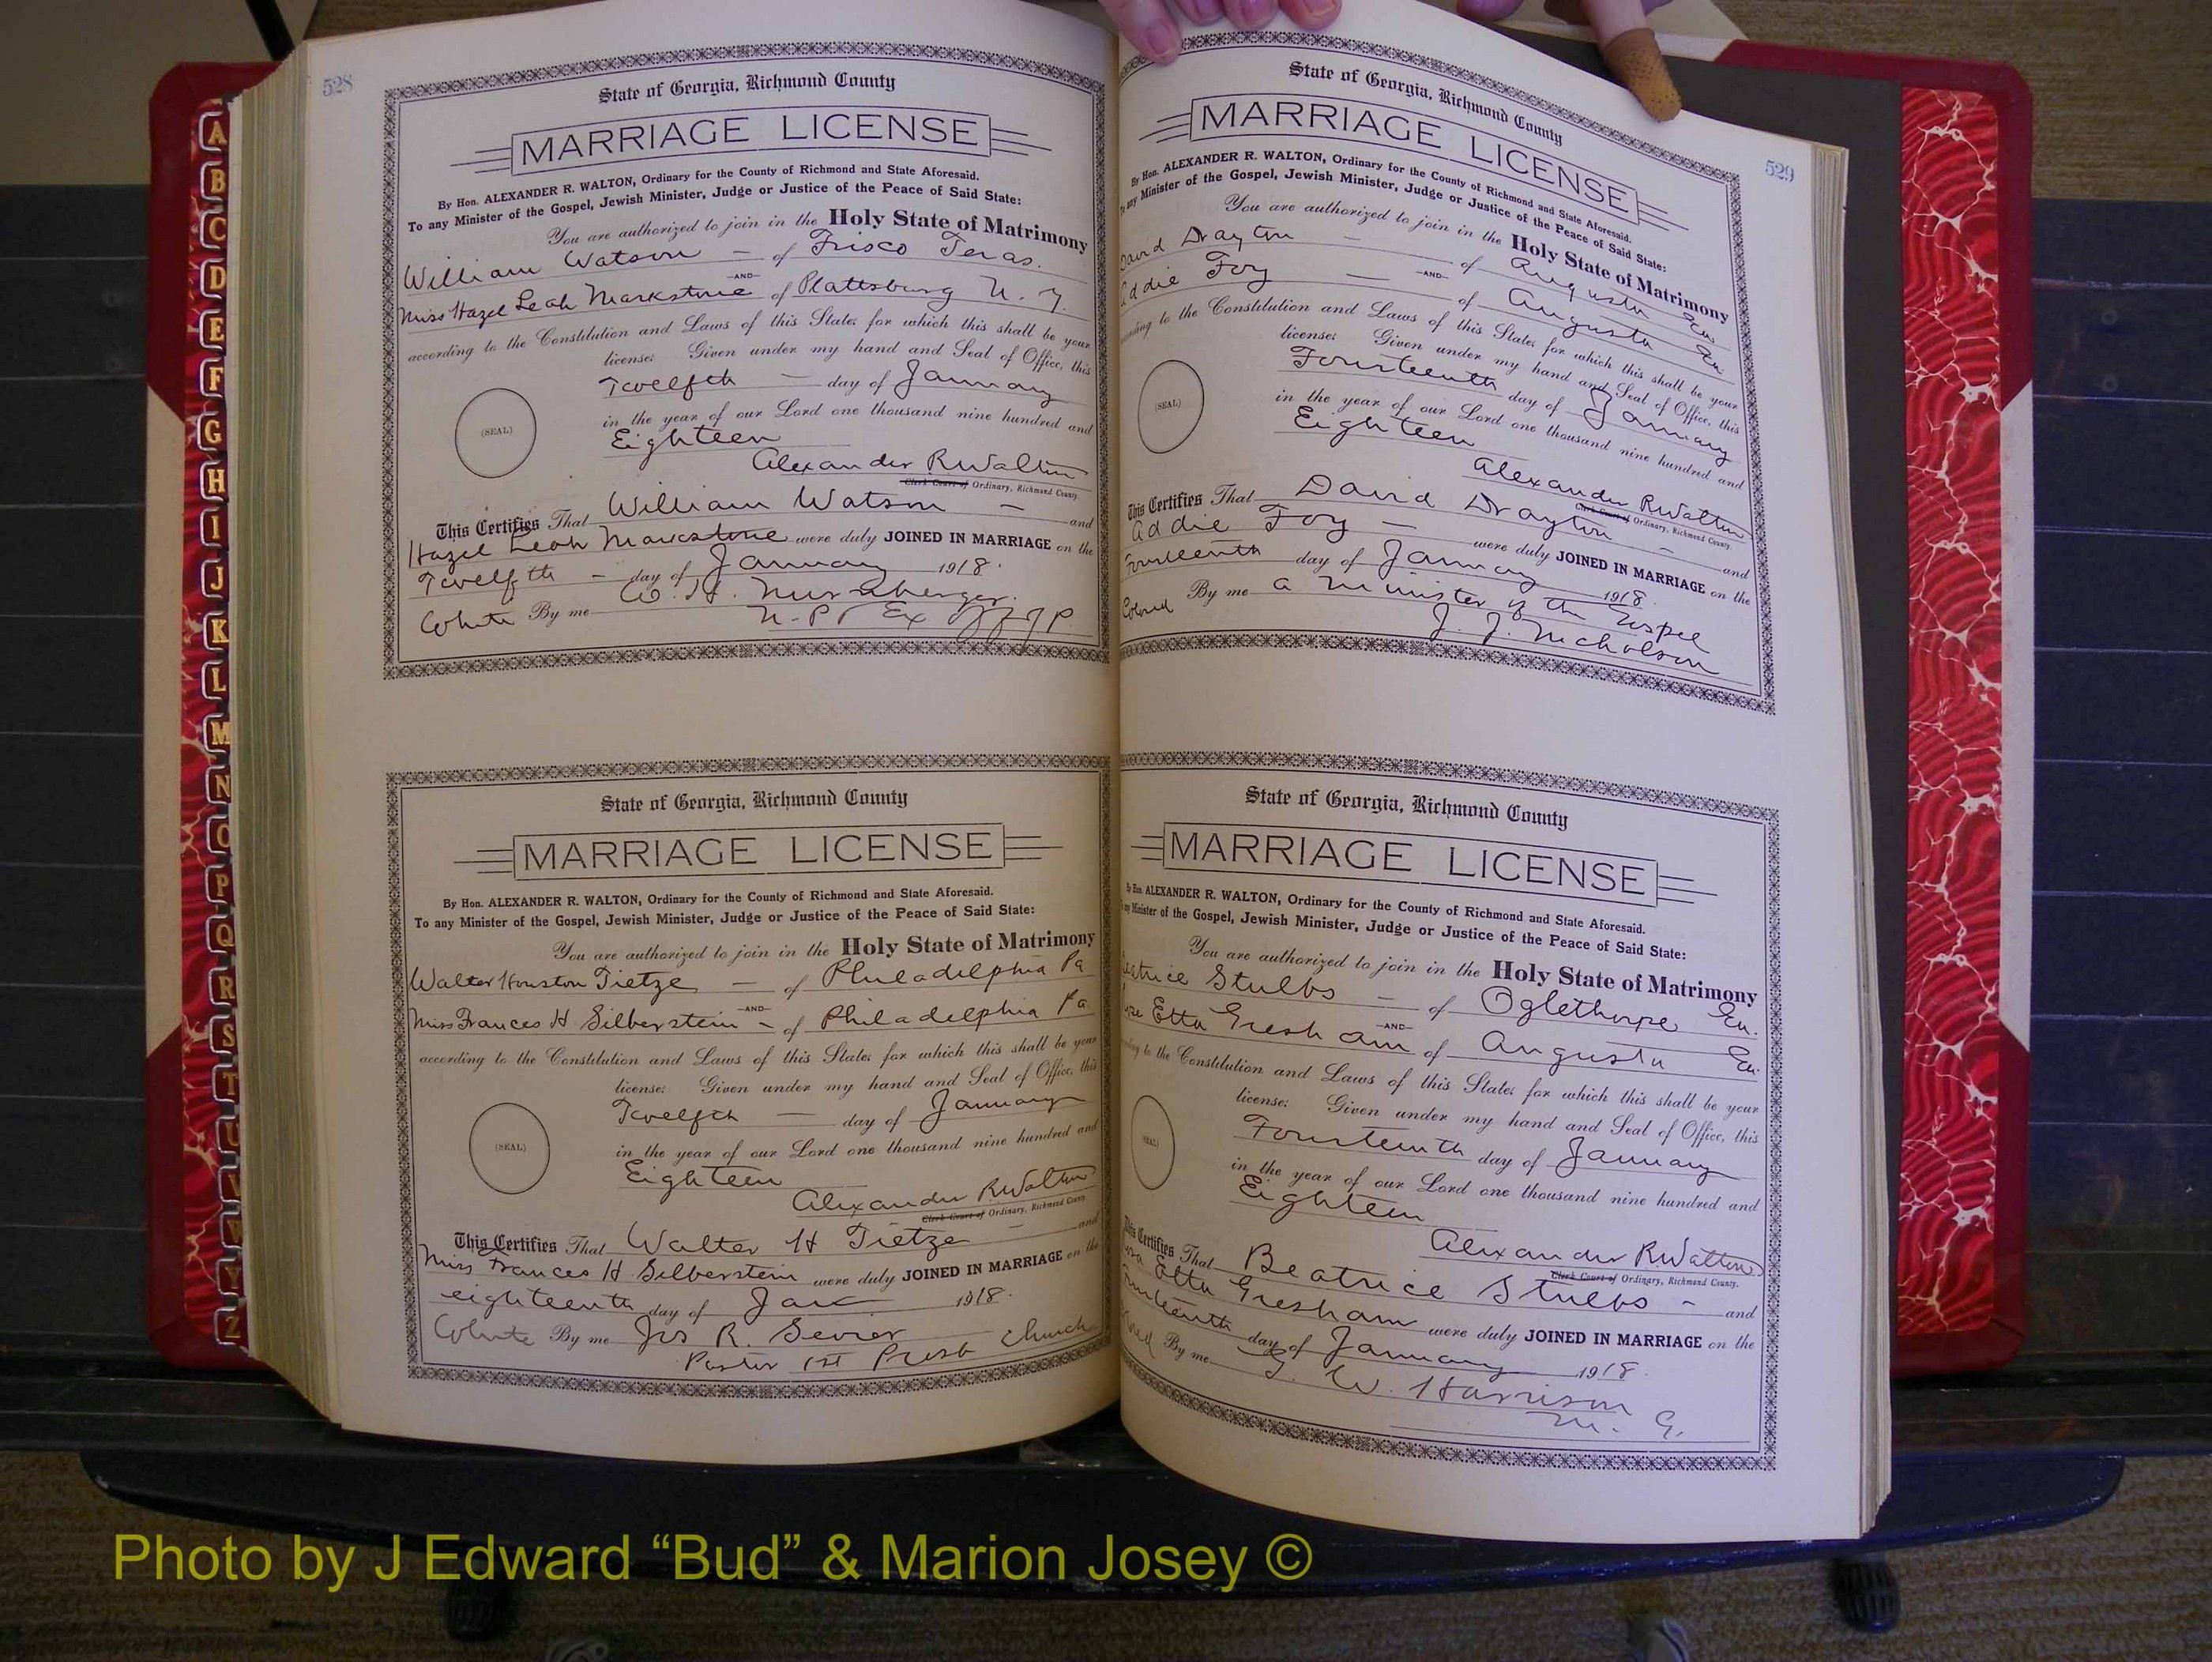 528
State of Georgia, Richmond County
MARRIAGE LICENSE
By Hon. ALEXANDER R. WALTON, Ordinary for the County of Richmond and State Aforesaid.
To any Minister of the Gospel, Jewish Minister, Judge or Justice of the Peace of Said State:
You are authorized to join in the Holy State of Matrimony
William Watson — of Frisco Texas.
—AND—
Miss Hazel Leah Markstone of Plattsburg N. Y.
according to the Constitution and Laws of this State; for which this shall be your
license: Given under my hand and Seal of Office, this
Twelfth — day of January
(SEAL)
in the year of our Lord one thousand nine hundred and
Eighteen
Alexander R Walton
Clerk Court of Ordinary, Richmond County
This Certifies That William Watson — and
Hazel Leah Markstone were duly JOINED IN MARRIAGE on the
Twelfth — day of January 1918.
White By me W. H. Nurnberger.
N. P. & Ex Off J P
State of Georgia, Richmond County
MARRIAGE LICENSE
By Hon. ALEXANDER R. WALTON, Ordinary for the County of Richmond and State Aforesaid.
To any Minister of the Gospel, Jewish Minister, Judge or Justice of the Peace of Said State:
You are authorized to join in the Holy State of Matrimony
Walter Houston Tietze — of Philadelphia Pa
—AND—
Miss Frances H Silberstein — of Philadelphia Pa
according to the Constitution and Laws of this State; for which this shall be your
license: Given under my hand and Seal of Office, this
Twelfth — day of January
(SEAL)
in the year of our Lord one thousand nine hundred and
Eighteen
Alexander R Walton
Clerk Court of Ordinary, Richmond County
This Certifies That Walter H Tietze — and
Miss Frances H Silberstein were duly JOINED IN MARRIAGE on the
eighteenth day of Jan 1918.
White By me Jos R. Sevier
Pastor 1st Presb Church
529
State of Georgia, Richmond County
MARRIAGE LICENSE
By Hon. ALEXANDER R. WALTON, Ordinary for the County of Richmond and State Aforesaid.
To any Minister of the Gospel, Jewish Minister, Judge or Justice of the Peace of Said State:
You are authorized to join in the Holy State of Matrimony
David Drayton — of Augusta Ga.
—AND—
Addie Foy — of Augusta Ga.
according to the Constitution and Laws of this State; for which this shall be your
license: Given under my hand and Seal of Office, this
Fourteenth day of January
(SEAL)
in the year of our Lord one thousand nine hundred and
Eighteen
Alexander R Walton
Clerk Court of Ordinary, Richmond County.
This Certifies That David Drayton — and
Addie Foy — were duly JOINED IN MARRIAGE on the
Fourteenth day of January 1918.
Colored By me a Minister of the Gospel
J. J. Nicholson
State of Georgia, Richmond County
MARRIAGE LICENSE
By Hon. ALEXANDER R. WALTON, Ordinary for the County of Richmond and State Aforesaid.
To any Minister of the Gospel, Jewish Minister, Judge or Justice of the Peace of Said State:
You are authorized to join in the Holy State of Matrimony
Beatrice Stubbs — of Oglethorpe Ga.
—AND—
Etta Gresham of Augusta Ga.
according to the Constitution and Laws of this State; for which this shall be your
license: Given under my hand and Seal of Office, this
Fourteenth day of January
(SEAL)
in the year of our Lord one thousand nine hundred and
Eighteen
Alexander R Walton
Clerk Court of Ordinary, Richmond County.
This Certifies That Beatrice Stubbs - and
Etta Gresham were duly JOINED IN MARRIAGE on the
Fourteenth day of January 1918.
By me W. Harrison
M. G.
A
B
C
D
E
F
G
H
I
J
K
L
M
N
O
P
Q
R
S
T
U
V
W
Y
Z
Photo by J Edward “Bud” & Marion Josey ©